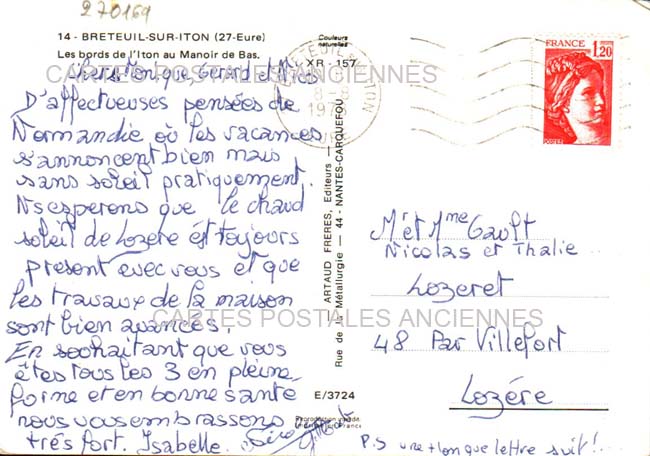 270169
14 - BRETEUIL-SUR-ITON (27-Eure)
Les bords de l'Iton au Manoir de Bas.
Couleurs
naturelles
XR - 157
CARTES POSTALES ANCIENNES
Chers Monique, Gérard et Nico
D'affectueuses pensées de
Normandie où les vacances
s'annoncent bien mais
sans soleil pratiquement.
Ns esperons que le chaud
soleil de Lozère est toujours
présent avec vous et que
les travaux de la maison
sont bien avancés.
CARTES POSTALES ANCIENNES
En souhaitant que vous
êtes tous les 3 en pleine
forme et en bonne santé
nous vous embrassons
très fort. Isabelle.
ARTAUD FRERES, Editeurs
Rue de la Métallurgie — 44 - NANTES-CARQUEFOU
E/3724
FRANCE
1,20
POSTES
Mr et Mme Gault
Nicolas et Thalie
Lozeret
48 Par Villefort
Lozére
P.S une + longue lettre suit!...